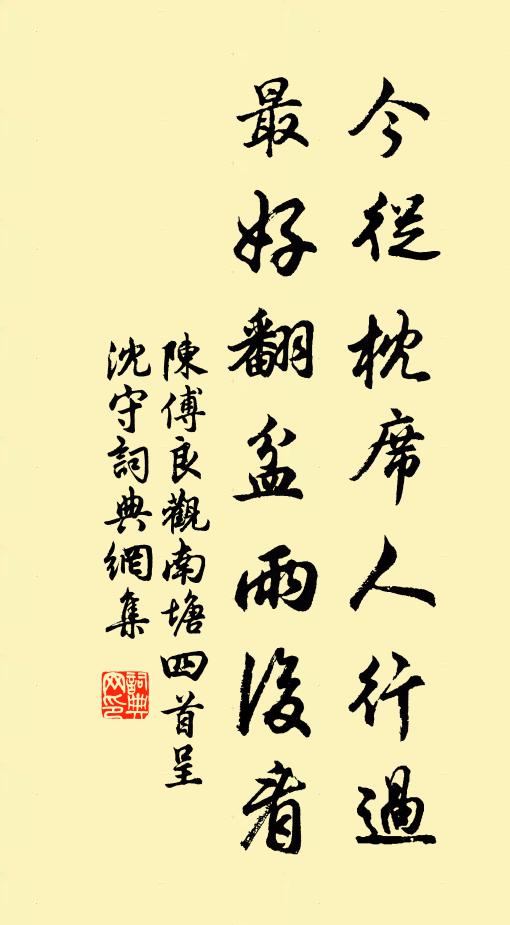 今從枕席人行過
最好翻盆雨後看
陳傅良觀南塘四首呈
沈守詞典網集
詞典
网印